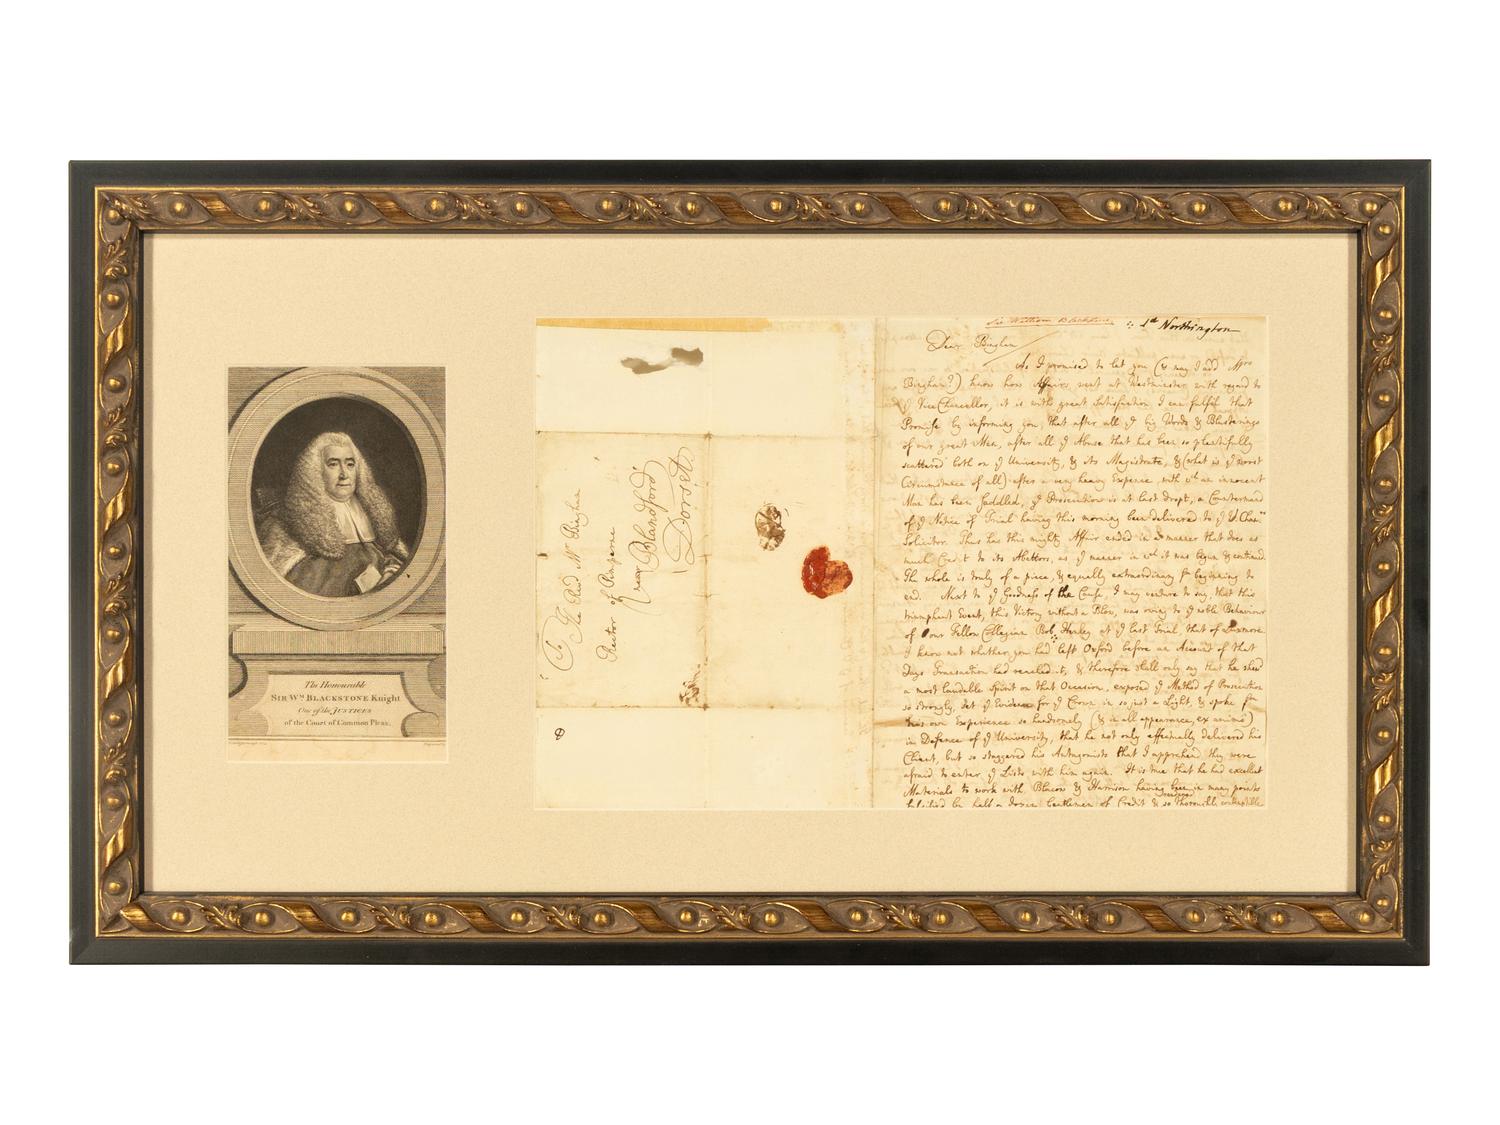 The Honourable
SIR Wm BLACKSTONE Knight
One of the JUSTICES
of the Court of Common Pleas.
To
The Revd Mr Bingham
Rector of Pimperne
near Blandford
Dorset
Sir William Blackstone
Ld Northington
Dear Bingham
As I promised to let you (& may I add Mrs
Bingham?) know how Affairs went at Westminster with regard to
ye Vice Chancellor, it is with great Satisfaction I can fulfill that
Promise by informing you, that after all ye big Words & Blusterings
of our great Men, after all ye Abuse that has been so plentifully
scattered both on ye University, & its Magistrate, & (what is ye worst
Circumstance of all) after a very heavy Expense, with wch an innocent
Man has been saddled, ye Prosecution is at last dropt, a Countermand
of ye Notice of Trial having this morning been delivered to ye V. Chanrs
Solicitor. Thus has this mighty Affair ended in a manner that does as
much Credit to its Abettors, as ye manner in wch it was begun & continued.
The whole is truly of a piece, & equally extraordinary fm beginning to
end. Next to ye Goodness of the Cause, I may venture to say, that this
triumphant Event, this Victory without a Blow, was owing to ye noble Behaviour
of our Fellow Collegian Bob: Henley at ye last Trial, that of Luxmore.
I know not whether you had left Oxford before an Account of that
Days Transaction had reached it, & therefore shall only say that he shew'd
a most laudable Spirit on that Occasion, exposed ye Method of Prosecution
so strongly, set ye Evidence for ye Crown in so just a Light, & spoke fm
his own Experience so handsomely (& in all appearance, ex animo)
in Defence of ye University, that he not only effectually delivered his
Client, but so staggered his Antagonists that I apprehend they were
afraid to enter ye Lists with him again. It is true that he had excellent
Materials to work with, Blacow & Harrison having been in many points
falsified by half a dozen Gentlemen of Credit & so thoroughly contemptible